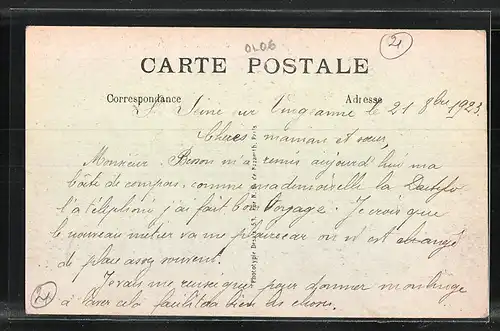 0606
2
CARTE POSTALE
Correspondance
Adresse
St Seine sur Vingeanne le 21 8bre 1923
Chères maman et sœur,
Monsieur m'a remis aujourd'hui ma
boîte de compas, comme mademoiselle la Dactylo
l'a téléphoné j'ai fait bon voyage. Je crois que
le nouveau métier va me plaire car on y est changé
de place assez souvent.
Je vais me renseigner pour donner mon linge
à laver cela facilitera bien les choses.
Phototypie Paris
2